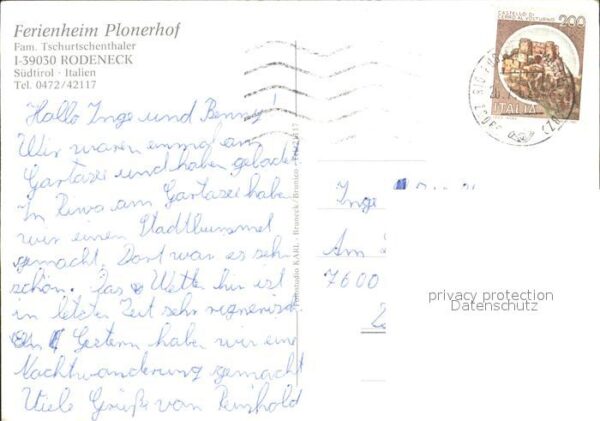 Ferienheim Plonerhof
Fam. Tschurtschenthaler
I-39030 RODENECK
Südtirol · Italien
Tel. 0472/42117
Hallo Inge und Benny!
Wir waren einmal am
Gartasee und haben gebadet
In Riwa am Gartasee haben
wir einen Stadtbummel
gemacht. Dort war es sehr
schön. Das Wetter hir ist
in letzter Zeit sehr regnerisch.
Gestern haben wir eine
Nachtwanderung gemacht
Viele Grüße von Reinhold
Fotostudio KARL - Bruneck / Brunico
CASTELLO DI
CERRO AL VOLTURNO
200
ITALIA
Inge
Am
7600
privacy protection
Datenschutz